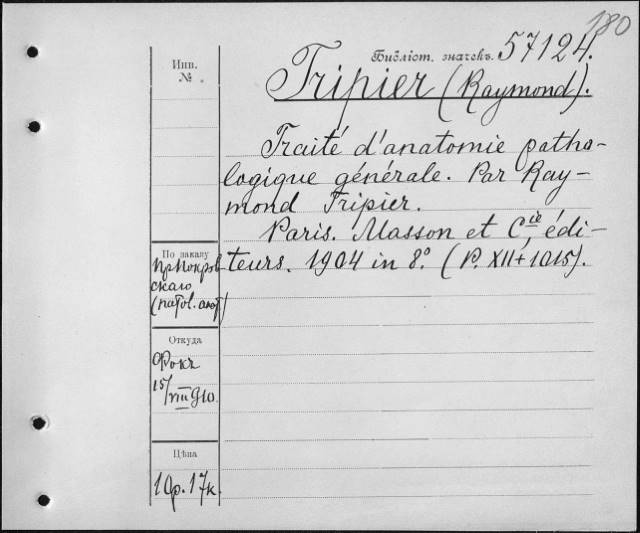 180
Библіот. значекъ. 57124.
Инв.
№
Tripier (Raymond).
Traité d'anatomie patho-
logique générale. Par Ray-
mond Tripier.
Paris. Masson et Cie édi-
teurs. 1904 in 8°. (P. XII+1015).
По заказу
Пр Покров-
скаго
(патол. анат)
Откуда
Фокъ
15/VIII 910.
Цѣна
10р. 17к.